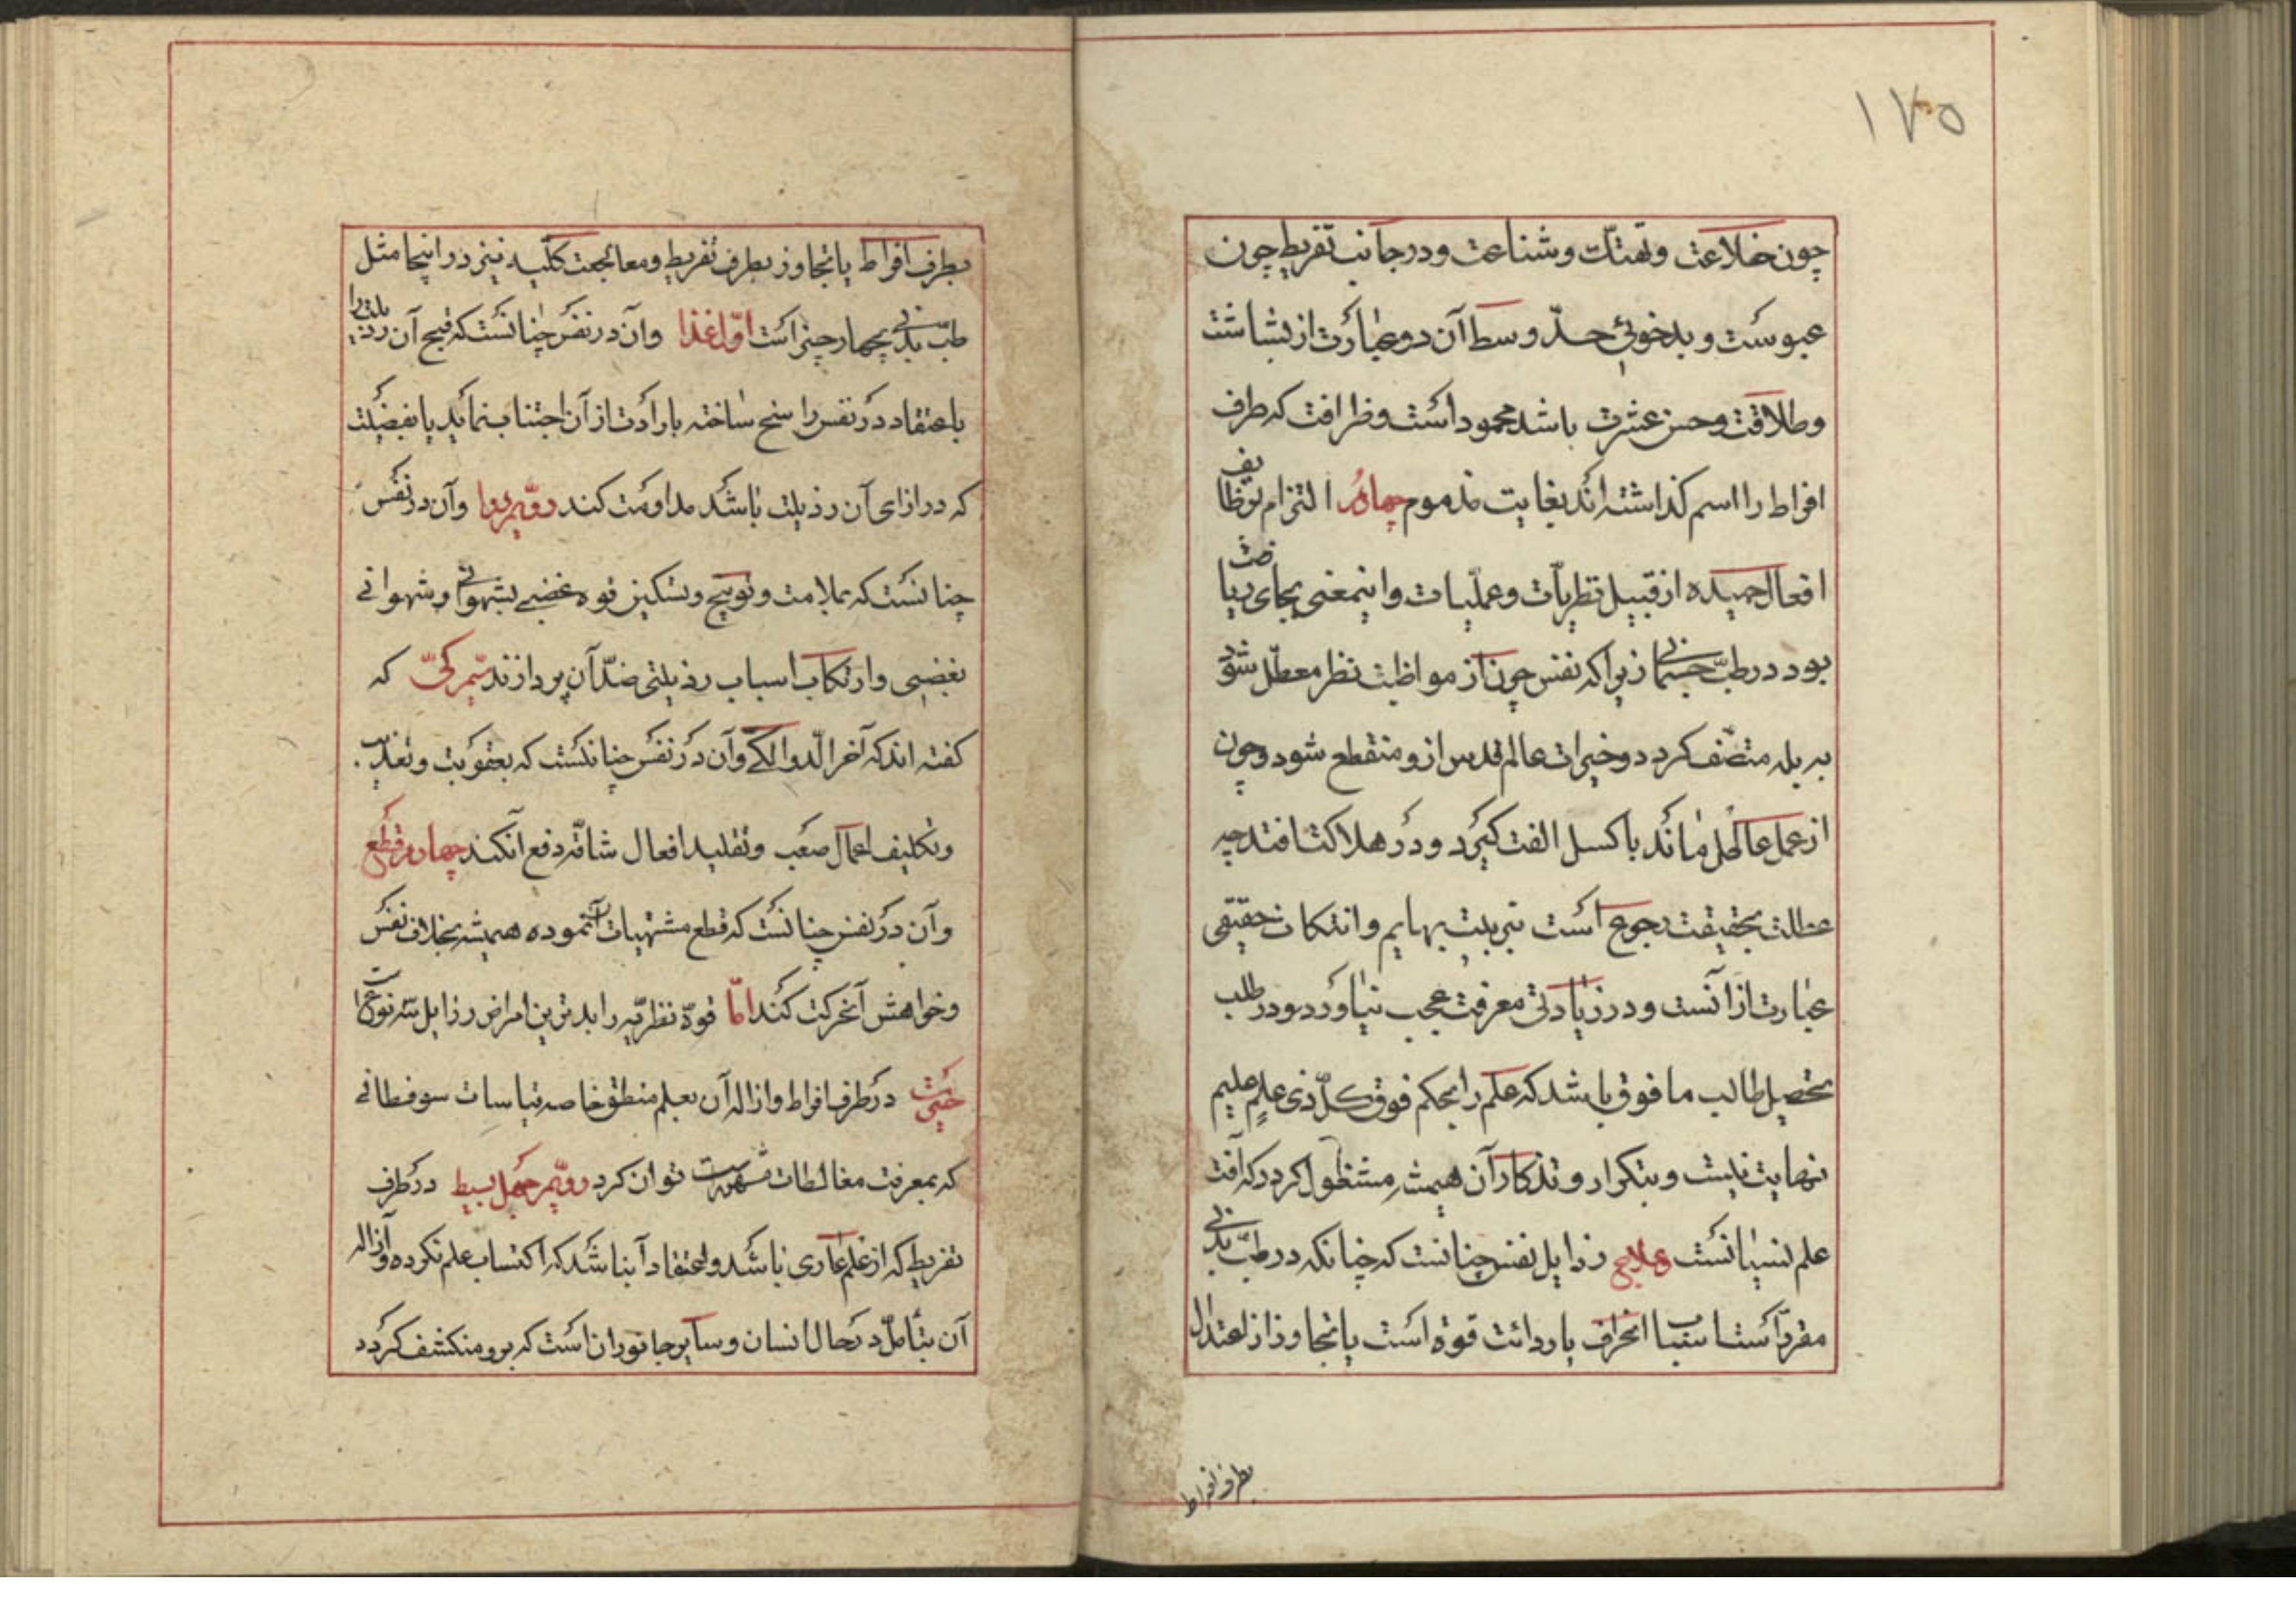 ١٧٥
چون خلاعت و تهتک و شناعت و در جانب تفریط چون
عبوست و بدخوئی حدّ وسط آن دو عبارت از بشاشت
وطلاقت وحسن عشرت باشد محمود است وظرافت که طرف
افراط را اسم کذاشته‌اند بغایت مذموم چهارم التزام توظایف
افعال حمیده از قبیل نظریّات وعملیات واینمعنی بجای ریاضت
بود در طبّ جسمانی زیرا که نفس چون از مواظبت نظر معطّل شود
به بله متصّف کردد وخیرات عالم قدس ازو منقطع شود وچون
از عمل عاطل ماند باکسل الفت کیرد ودر هلاکت افتد چه
عطالت بحقیقت رجوع است بتربیت بهایم وانتکاث حقیقی
عبارت از آنست و در زیادتی معرفت عجب نیاورد ودر طلب
تحصیل طالب مافوق باشد که علم را بحکم فوق کلّ ذی علمٍ علیم
نهایت نیست وبتکرار وتذکار آن همیشه مشغول کردد که آفت
علم نسیانست علاج رذایل نفس چنانست که چنانکه در طبّ بدنی
مقرّر است اسباب انحراف یا ردائت قوة است یا تجاوز از اعتدال
بطرف افراط
بطرف افراط یا تجاوز بطرف تفریط ومعالجت کلّیه نیز در اینجا مثل
طبّ بدنی بچهار چیز است اوّل غذا وآن در نفس چنانست که قبح آن رذیلت را
باعتقاد در نفس راسخ ساخته بارادت از آن اجتناب نماید یا بفضیلت
که در ازای آن رذیلت باشد مداومت کند دوّیم دوا وآن در نفس
چنانست که بملامت وتوبیخ وتسکین قوه غضبی بشهوانی وشهوانی
بغضبی وارتکاب اسباب رذیلتی ضدّ آن پردازند سیّم کیّ که
کفته‌اند که آخر الدّواء الکیّ وآن در نفس چنانست که بعقوبت وتعذیب
وتکلیف اعمال صعب وتقلید افعال شاقّه دفع آنکند چهارم قطع
وآن در نفس چنانست که قطع مشتهیات آن نموده همیشه بخلاف نفس
وخواهش آنحرکت کند امّا قوّة نظریّه را بدترین امراض رذایل سه نوع است
حیرت در طرف افراط وازاله آن بعلم منطق خاصه قیاسات سوفسطائی
که بمعرفت مغالطات توان کرد دوّیم جهل بسیط در طرف
تفریط که از علم عاری باشد واعتقاد آنباشد که اکتساب علم نکرده وازاله
آن بتأمّل در حال انسان وسایر جانوران است که برو منکشف کردد